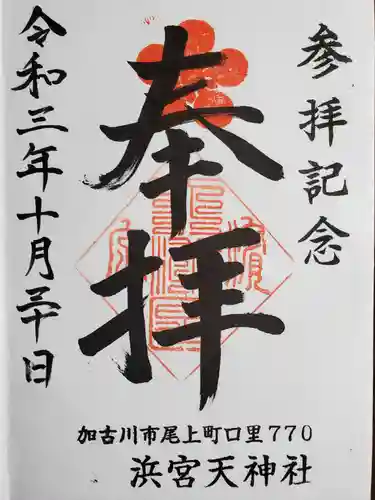 参拝記念
奉拝
令和三年十月三十日
加古川市尾上町口里770
浜宮天神社